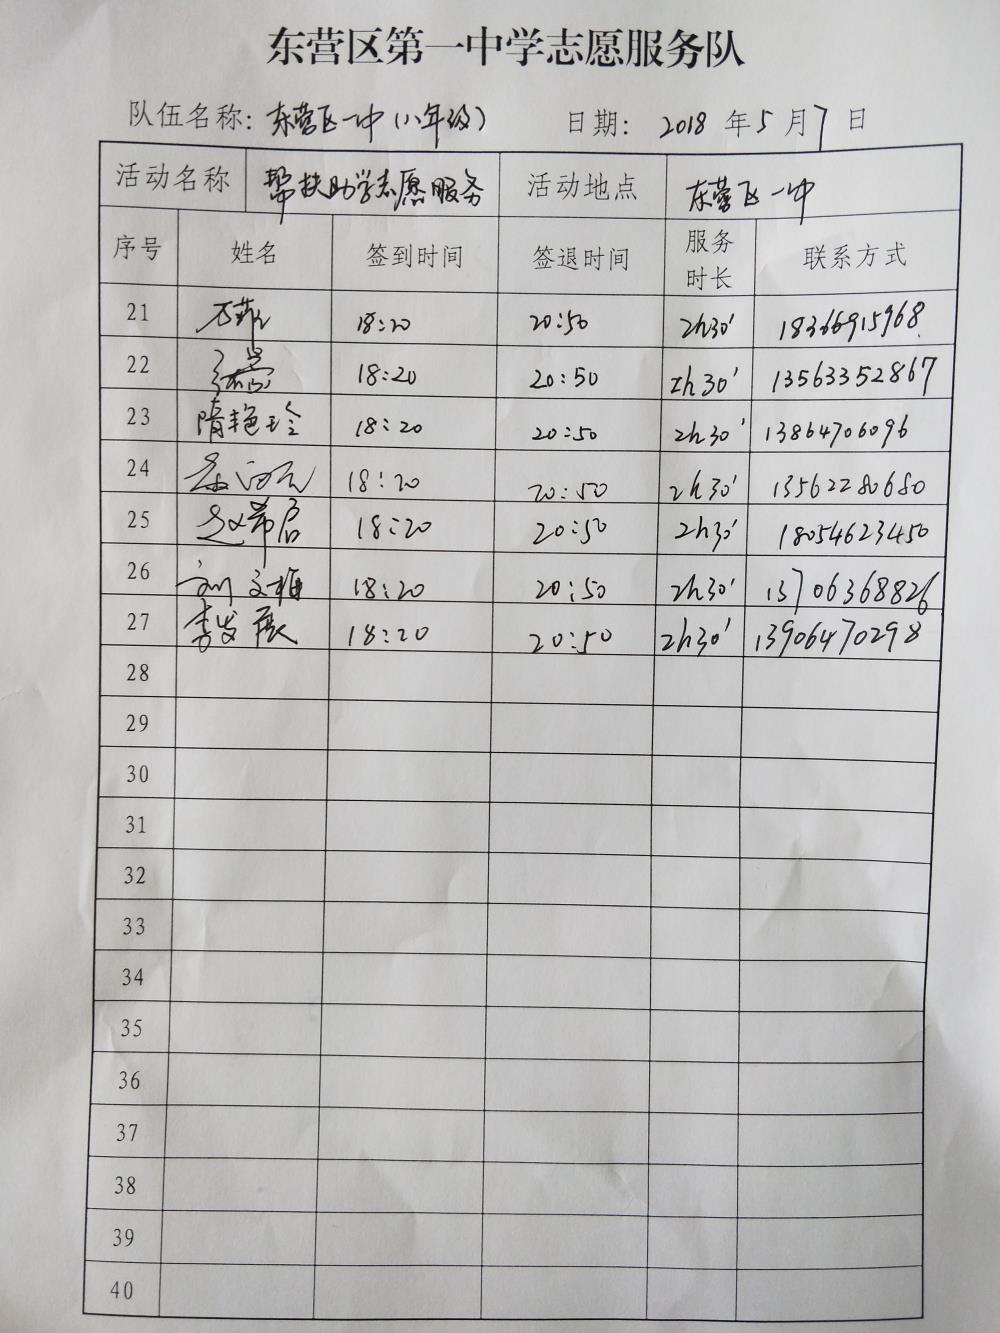 东营区第一中学志愿服务队
队伍名称: 东营区一中(八年级) 日期: 2018 年 5 月 7 日
活动名称 帮扶助学志愿服务 活动地点 东营区一中
序号 姓名 签到时间 签退时间 服务时长 联系方式
21 18:20 20:50 2h30' 18366915968
22 18:20 20:50 2h30' 13563352867
23 隋艳玲 18:20 20:50 2h30' 13864706096
24 18:20 20:50 2h30' 13562280680
25 赵希启 18:20 20:50 2h30' 18054623450
26 刘文梅 18:20 20:50 2h30' 13706368826
27 李发展 18:20 20:50 2h30' 13906470298
28
29
30
31
32
33
34
35
36
37
38
39
40